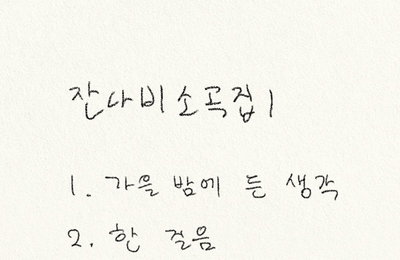 잔나비 소곡집 1
1. 가을 밤에 든 생각
2. 한 걸음